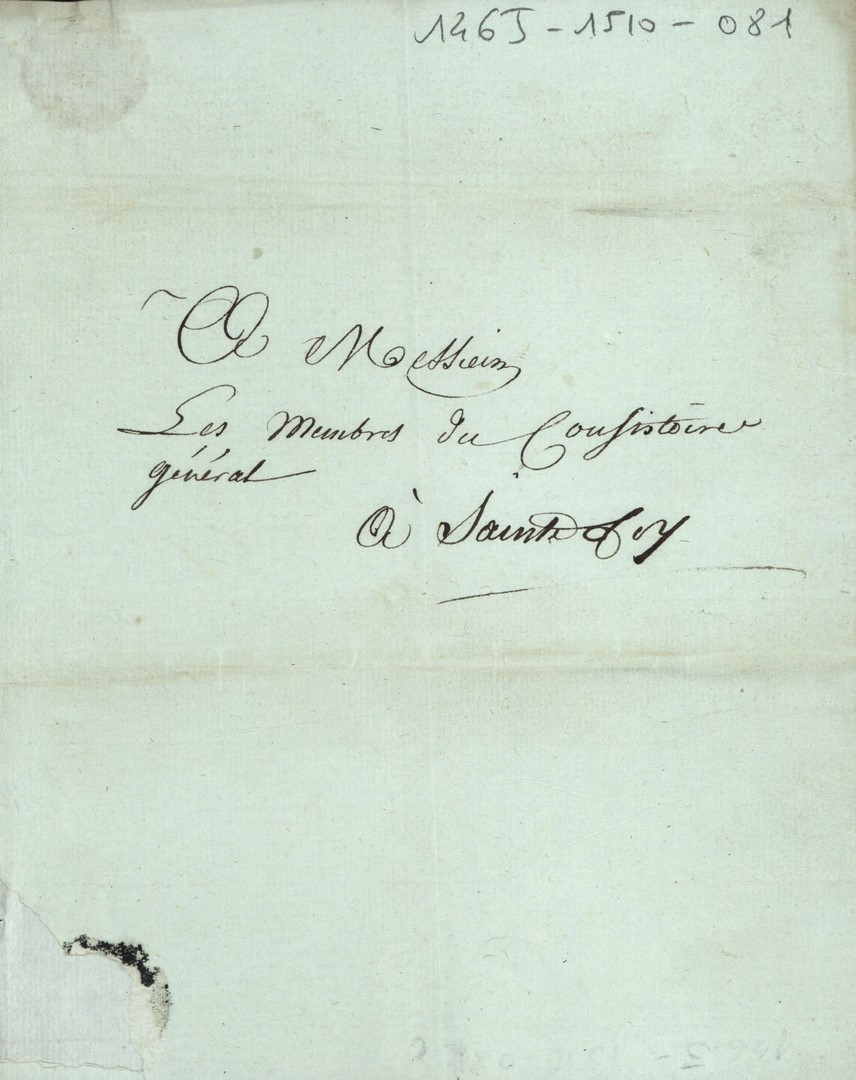 146J - 1510 - 081
A Messieurs
Les Membres du Consistoire
général
à Sainte Foy